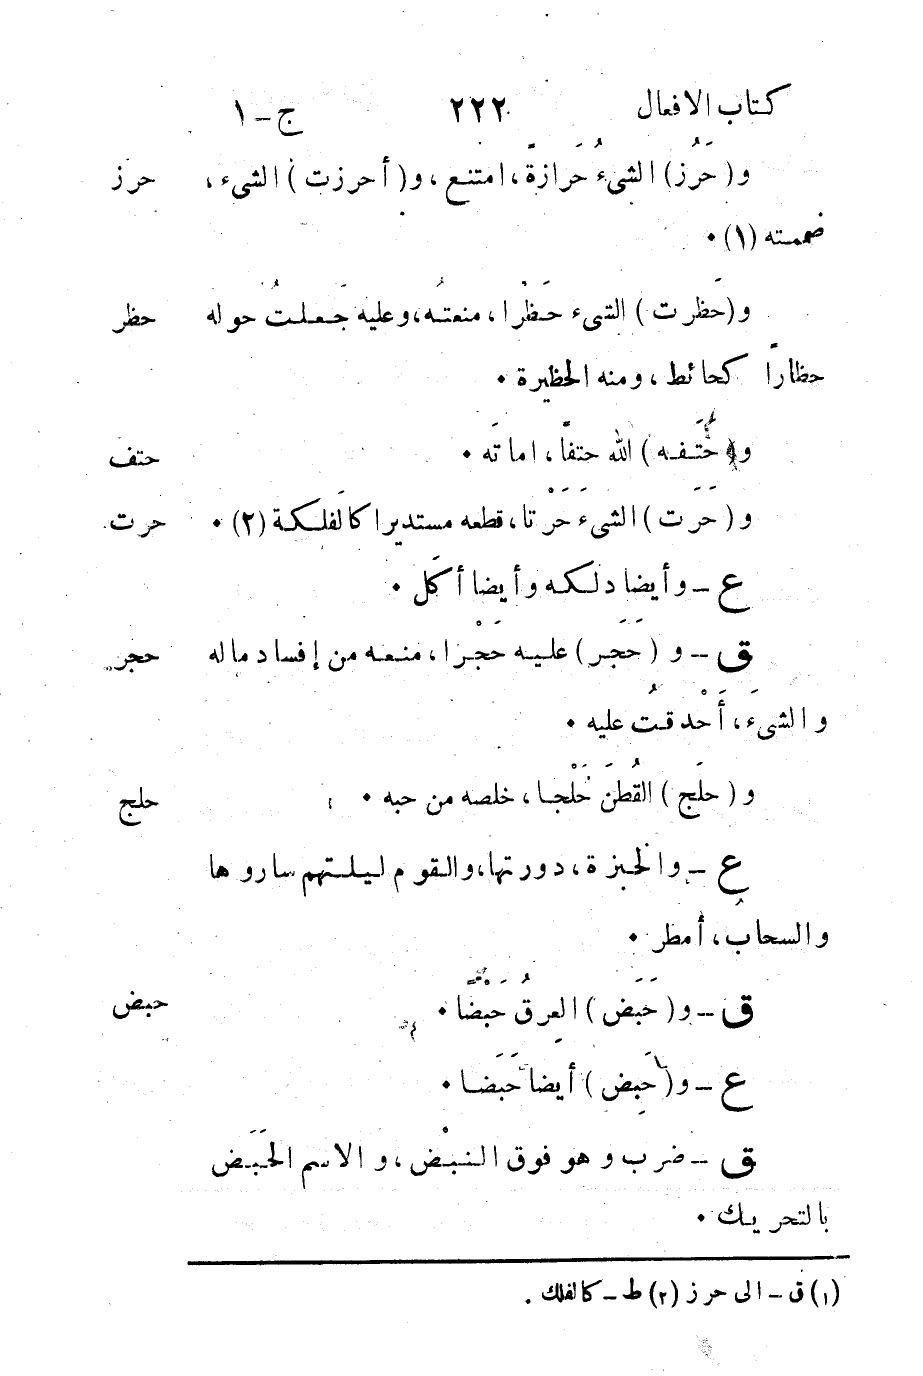 كتاب الافعال ٢٢٢ ج - ١
و (حَرُز) الشىءُ حَرازةً، امتنع، و (أحرزت) الشىء، حرز
ضممته (١) •
و (حَظرت) الشىء حَظْرا، منعتُه، وعليه جَعلتُ حوله حظر
حظارًا كحائط، ومنه الحظيرة •
و (حَتَفه) الله حتفًا، اماتَه • حتف
و (حَرَت) الشىءَ حَرْتا، قطعه مستديرا كالَفلكة (٢) • حرت
ع - وأيضا دلكه وأيضا أكَل •
ق - و (حَجَر) عليه حَجْرا، منعه من إفساد ماله حجر
والشىءَ، أَحْدقتُ عليه •
و (حلَج) القُطنَ حَلْجا، خلصه من حبه • حلج
ع - والخبزة، دورتها، والقوم ليلتهم ساروها
والسحابُ، أمطر •
ق - و (حَبَض) العِرقُ حَبْضًا • حبض
ع - و (حَبِض) أيضا حَبَضا •
ق - ضرب وهو فوق النبْض، والاسم الحَبَض
بالتحريك •
(١) ق - الى حرز (٢) ط - كالفلك .